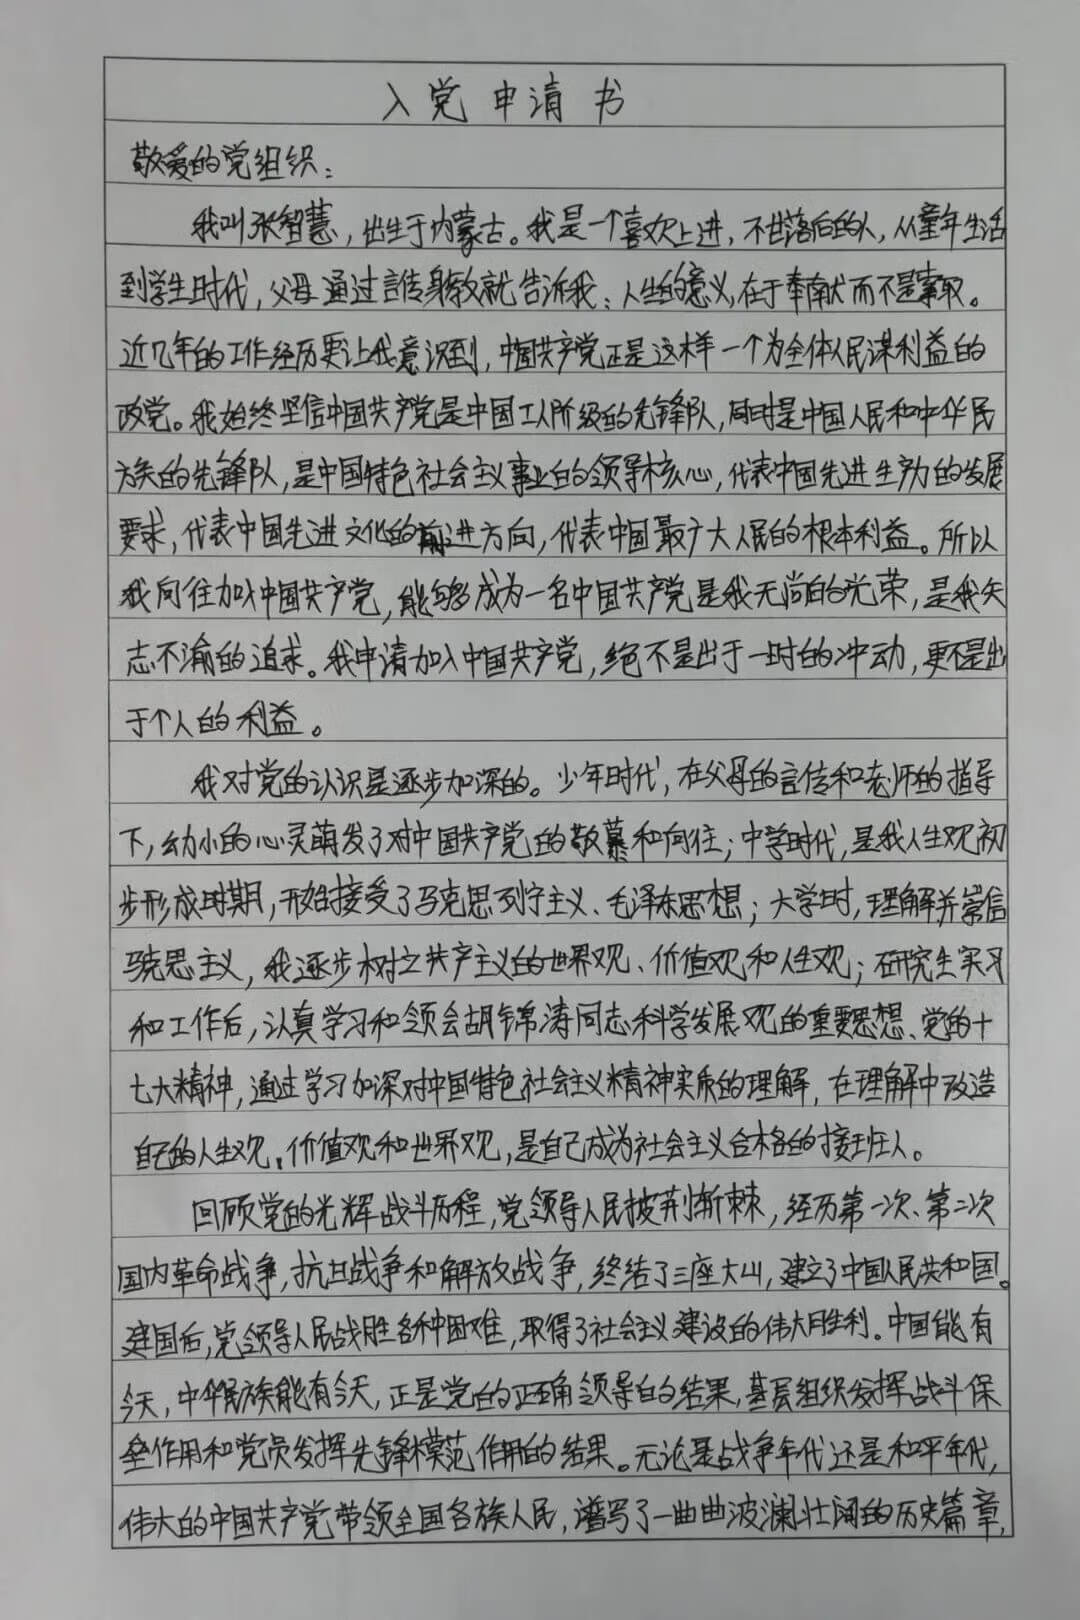 入党申请书
敬爱的党组织：
我叫张智慧，出生于内蒙古。我是一个喜欢上进，不甘落后的人，从童年生活
到学生时代，父母通过言传身教就告诉我：人生的意义，在于奉献而不是索取。
近几年的工作经历更让我意识到，中国共产党正是这样一个为全体人民谋利益的
政党。我始终坚信中国共产党是中国工人阶级的先锋队，同时是中国人民和中华民
族的先锋队，是中国特色社会主义事业的领导核心，代表中国先进生产力的发展
要求，代表中国先进文化的前进方向，代表中国最广大人民的根本利益。所以
我向往加入中国共产党，能够成为一名中国共产党是我无尚的光荣，是我矢
志不渝的追求。我申请加入中国共产党，绝不是出于一时的冲动，更不是出
于个人的利益。
我对党的认识是逐步加深的。少年时代，在父母的言传和老师的指导
下，幼小的心灵萌发了对中国共产党的敬慕和向往；中学时代，是我人生观初
步形成时期，开始接受了马克思列宁主义、毛泽东思想；大学时，理解并崇信
马克思主义，我逐步树立共产主义的世界观、价值观和人生观；研究生实习
和工作后，认真学习和领会胡锦涛同志科学发展观的重要思想、党的十
七大精神，通过学习加深对中国特色社会主义精神实质的理解，在理解中改造
自己的人生观、价值观和世界观，是自己成为社会主义合格的接班人。
回顾党的光辉战斗历程，党领导人民披荆斩棘，经历第一次、第二次
国内革命战争，抗日战争和解放战争，终结了三座大山，建立了中国人民共和国。
建国后，党领导人民战胜各种困难，取得了社会主义建设的伟大胜利。中国能有
今天，中华民族能有今天，正是党的正确领导的结果，基层组织发挥战斗保
垒作用和党员发挥先锋模范作用的结果。无论是战争年代还是和平年代，
伟大的中国共产党带领全国各族人民，谱写了一曲曲波澜壮阔的历史篇章，